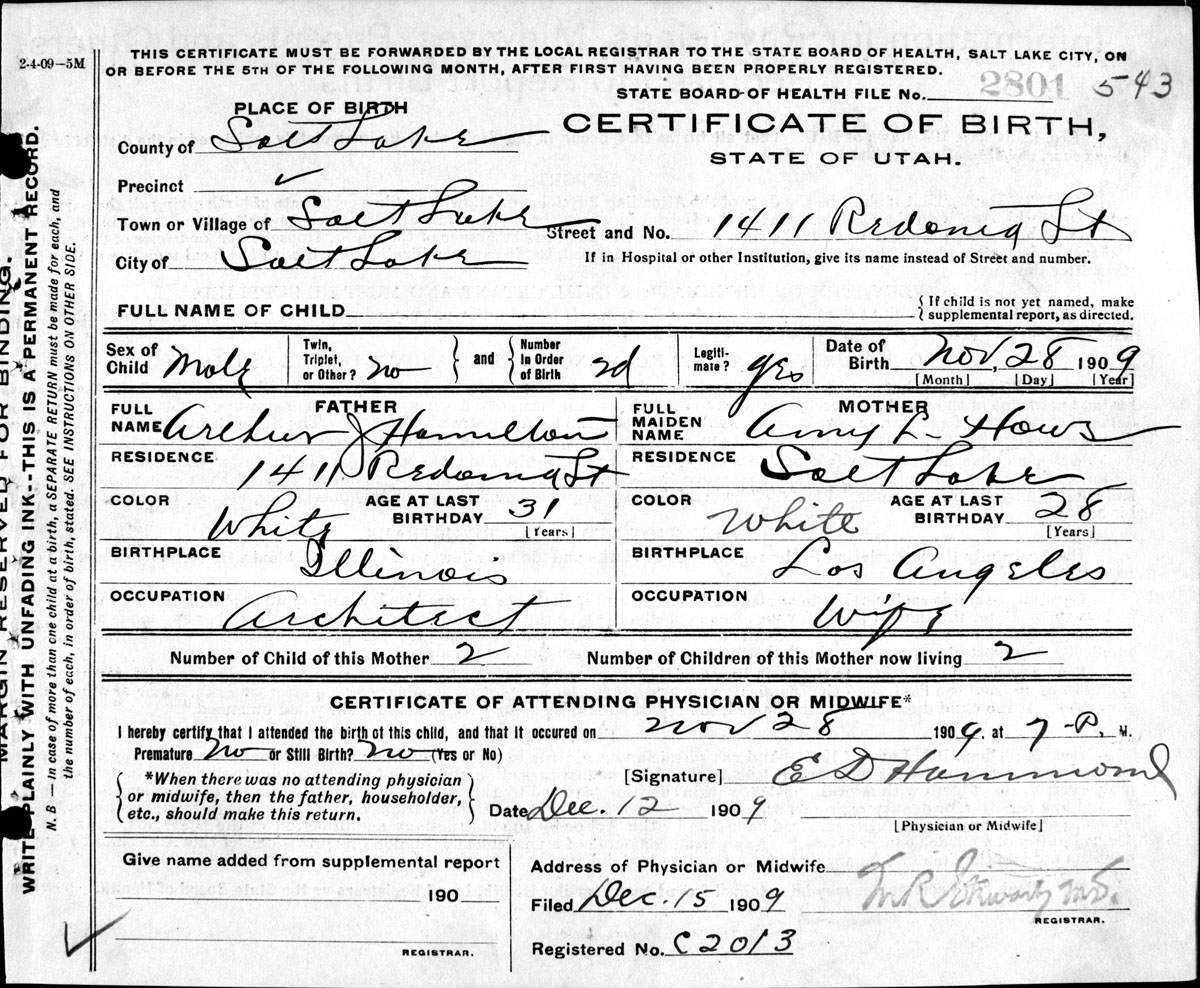 2-4-09-5M
THIS CERTIFICATE MUST BE FORWARDED BY THE LOCAL REGISTRAR TO THE STATE BOARD OF HEALTH, SALT LAKE CITY, ON
OR BEFORE THE 5TH OF THE FOLLOWING MONTH, AFTER FIRST HAVING BEEN PROPERLY REGISTERED.
STATE BOARD OF HEALTH FILE No. 2801 543
PLACE OF BIRTH
CERTIFICATE OF BIRTH,
STATE OF UTAH.
County of Salt Lake
Precinct
Town or Village of Salt Lake
Street and No. 1411 Redonia St
City of Salt Lake
If in Hospital or other Institution, give its name instead of Street and number.
FULL NAME OF CHILD
{If child is not yet named, make
supplemental report, as directed.
Sex of Child Male
Twin, Triplet, or Other? no
and
Number in Order of Birth 2d
Legitimate? yes
Date of Birth Nov, 28 1909
[Month] [Day] [Year]
FATHER
FULL NAME Arthur J Hamilton
MOTHER
FULL MAIDEN NAME Amy L. Hows
RESIDENCE 1411 Redonia St
RESIDENCE Salt Lake
COLOR White
AGE AT LAST BIRTHDAY 31 [Years]
COLOR White
AGE AT LAST BIRTHDAY 28 [Years]
BIRTHPLACE Illinois
BIRTHPLACE Los Angeles
OCCUPATION Architect
OCCUPATION Wife
Number of Child of this Mother 2
Number of Children of this Mother now living 2
CERTIFICATE OF ATTENDING PHYSICIAN OR MIDWIFE*
I hereby certify that I attended the birth of this child, and that it occured on Nov 28 1909, at 7 P. M.
Premature No or Still Birth? No (Yes or No)
*When there was no attending physician
or midwife, then the father, householder,
etc., should make this return.
[Signature] E D Hammond
Date Dec. 12 1909
[Physician or Midwife]
Give name added from supplemental report
190
REGISTRAR.
Address of Physician or Midwife
Filed Dec. 15 1909
M.D.
REGISTRAR.
Registered No. C2013
MARGIN RESERVED FOR BINDING.
WRITE PLAINLY WITH UNFADING INK--THIS IS A PERMANENT RECORD.
N. B.—In case of more than one child at a birth, a SEPARATE RETURN must be made for each, and
the number of each, in order of birth, stated. SEE INSTRUCTIONS ON OTHER SIDE.